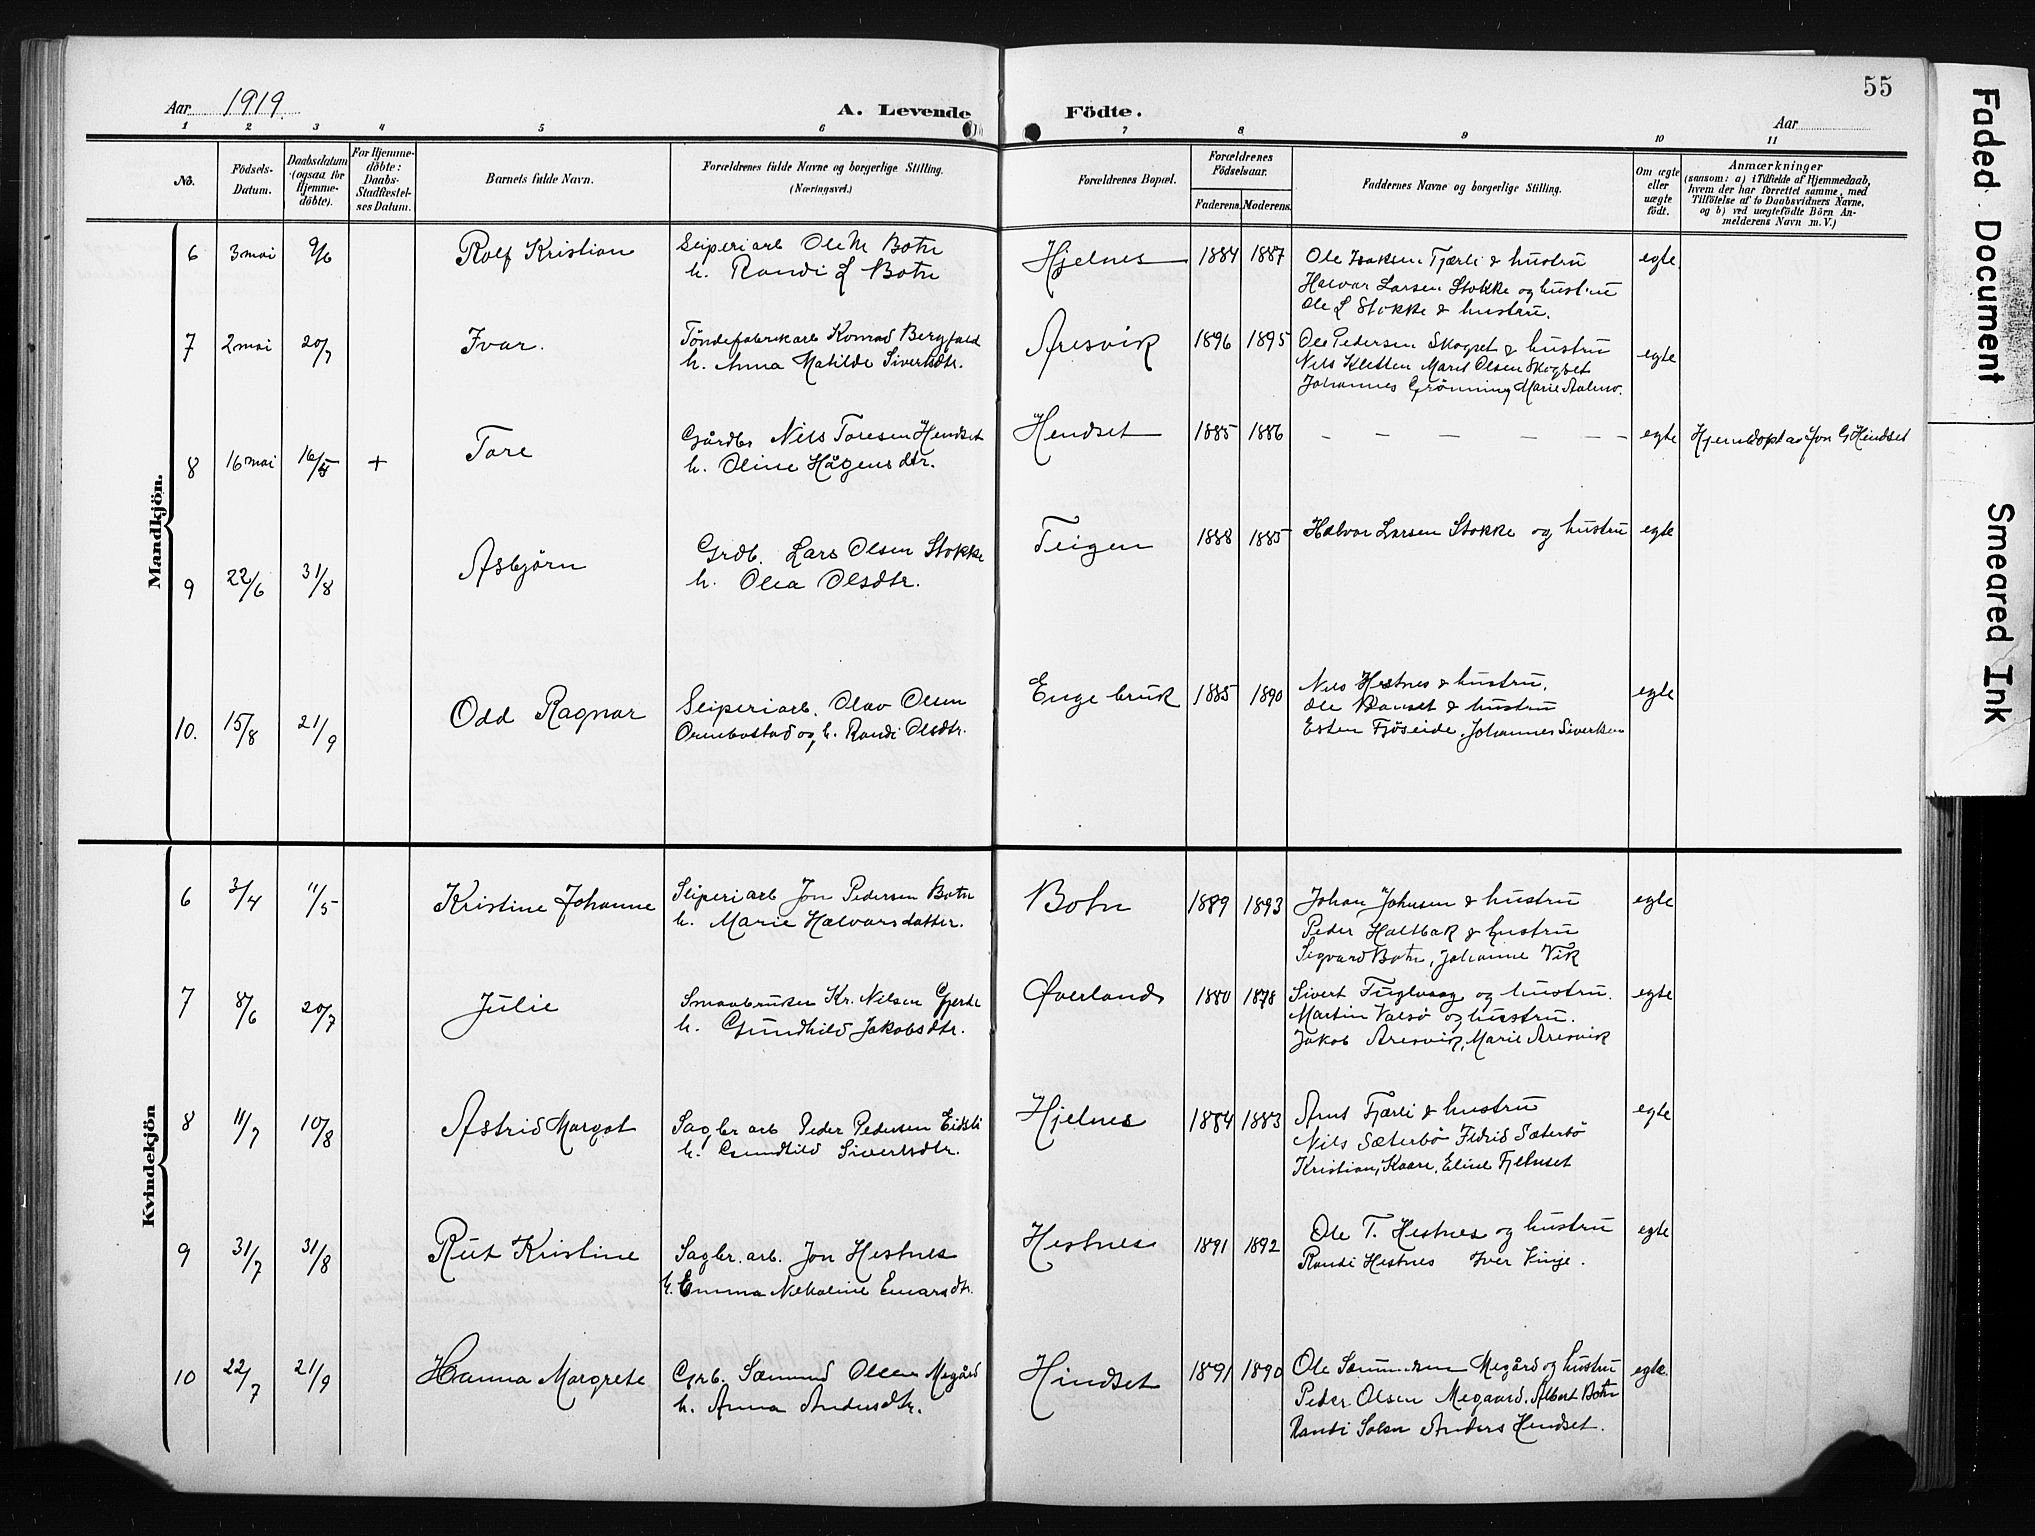 55
Aar 1919.
A. Levende Födte.
Aar
1 2 3 4 5 6 7 8 9 10 11
No.
Födsels-Datum.
Daabsdatum (ogsaa for Hjemme-döbte).
For Hjemme-döbte: Daabs-Stadfæstel-ses Datum.
Barnets fulde Navn.
Forældrenes fulde Navne og borgerlige Stilling.
(Næringsvei.)
Forældrenes Bopæl.
Forældrenes Födselsaar.
Faderens. Moderens.
Faddernes Navne og borgerlige Stilling.
Om ægte eller uægte födt.
Anmærkninger
(saasom: a) i Tilfælde af Hjemmedaab,
hvem der har forrettet samme, med
Tilföielse af to Daabsvidners Navne,
og b) ved uægtefödte Börn An-
melderens Navn m. V.)
Mandkjön.
6 3 mai 9/6 Rolf Kristian Sliperiarb Ole M Botn Hjelnes 1884 1887 Ole Isaksen Fjærli & hustru egte
h. Randi L Botn Halvar Larsen Stokke og hustru
Ole L Stokke & hustru.
7 2 mai 20/7 Ivar. Töndefabrikarb Konrad Bergfald Aresvik 1896 1895 Ole Pedersen Skogset & hustru egte
h. Anna Matilde Sivertsdtr. Nils Kletten Marit Olsen Skogset
Johannes Grönning Marie
8 16 mai 16/5 + Tore Gårdbr Nils Toresen Hendset Hendset 1885 1886 — — — — — — egte Hjemdöpt av Jon G Hindset
h. Oline Hågensdtr.
9 22/6 31/8 Asbjørn Grdb. Lars Olsen Stokke Teigen 1888 1885 Halvor Larsen Stokke og hustru egte
h. Olea Olsdtr.
10. 15/8 21/9 Odd Ragnar Sliperiarb. Olav Olsen Engebruk 1885 1890 Nils Hestnes & hustru. egte
Ormbostad og h. Randi Olsdtr. Ole & hustru
Esten Fjöseide, Johannes Sivertsen
Kvindekjön
6 3/4 11/5 Kristine Johanne Sliperiarb Jon Pedersen Botn Botn 1889 1893 Johan Johnsen & hustru egte
h. Marie Halvarsdatter. Peder Haltbak & hustru
Sigvard Botn, Johanne Vik
7 8/6 20/7 Julie Smaabruker Kr. Nilsen Gjerde Øverland 1880 1878 Sivert Fuglvaag og hustru. egte
h. Gundhild Jakobsdtr. Martin Valsø og hustru.
Jakob Aresvik, Marie Aresvik
8 11/7 10/8 Astrid Margot Sagbr arb Peder Pedersen Eidsli Hjelnes 1884 1883 Arnt Fjærli & hustru egte
h. Gundhild Sivertsdtr. Nils Sæterbö Fldrid Sæterbö
Kristian, Kaare, Eline Fjelnset
9 31/7 31/8 Rut Kristine Sagbr. arb. Jon Hestnes Hestnes 1891 1892 Ole T. Hestnes og hustru egte
h. Emma Nikoline Einarsdtr. Randi Hestnes Iver Vinje.
10 22/7 21/9 Hanna Margrete Grb. Sæmund Olsen Megård Hindset 1891 1890 Ole Sæmundsen Megård og hustru egte
h. Anna Andersdtr. Peder Olsen Megaard, Albert Botn
Randi Anders Hendset.
Faded Document
Smeared Ink